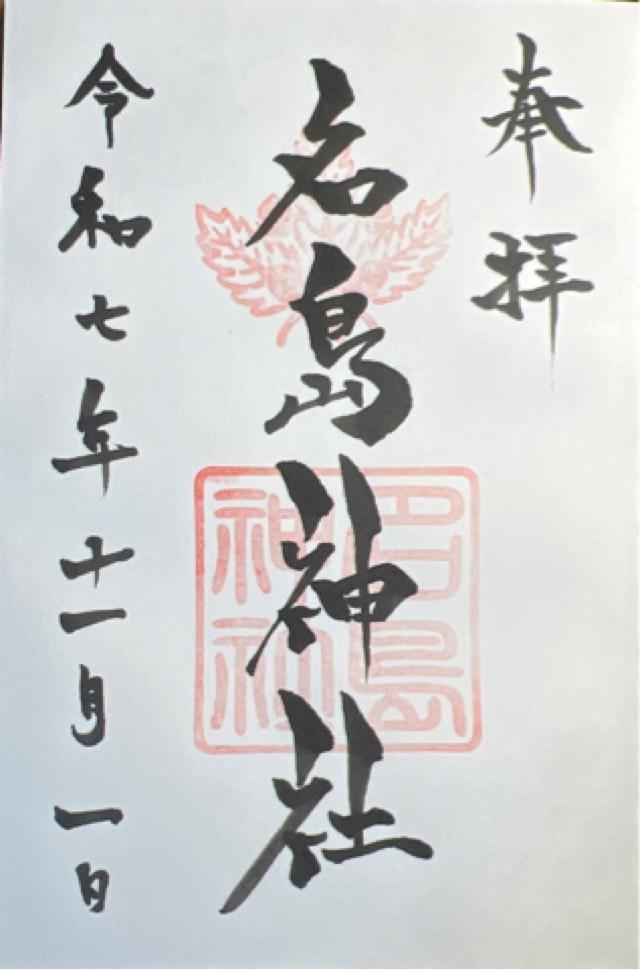 奉拝
名島神社
名島神社
令和七年十一月一日